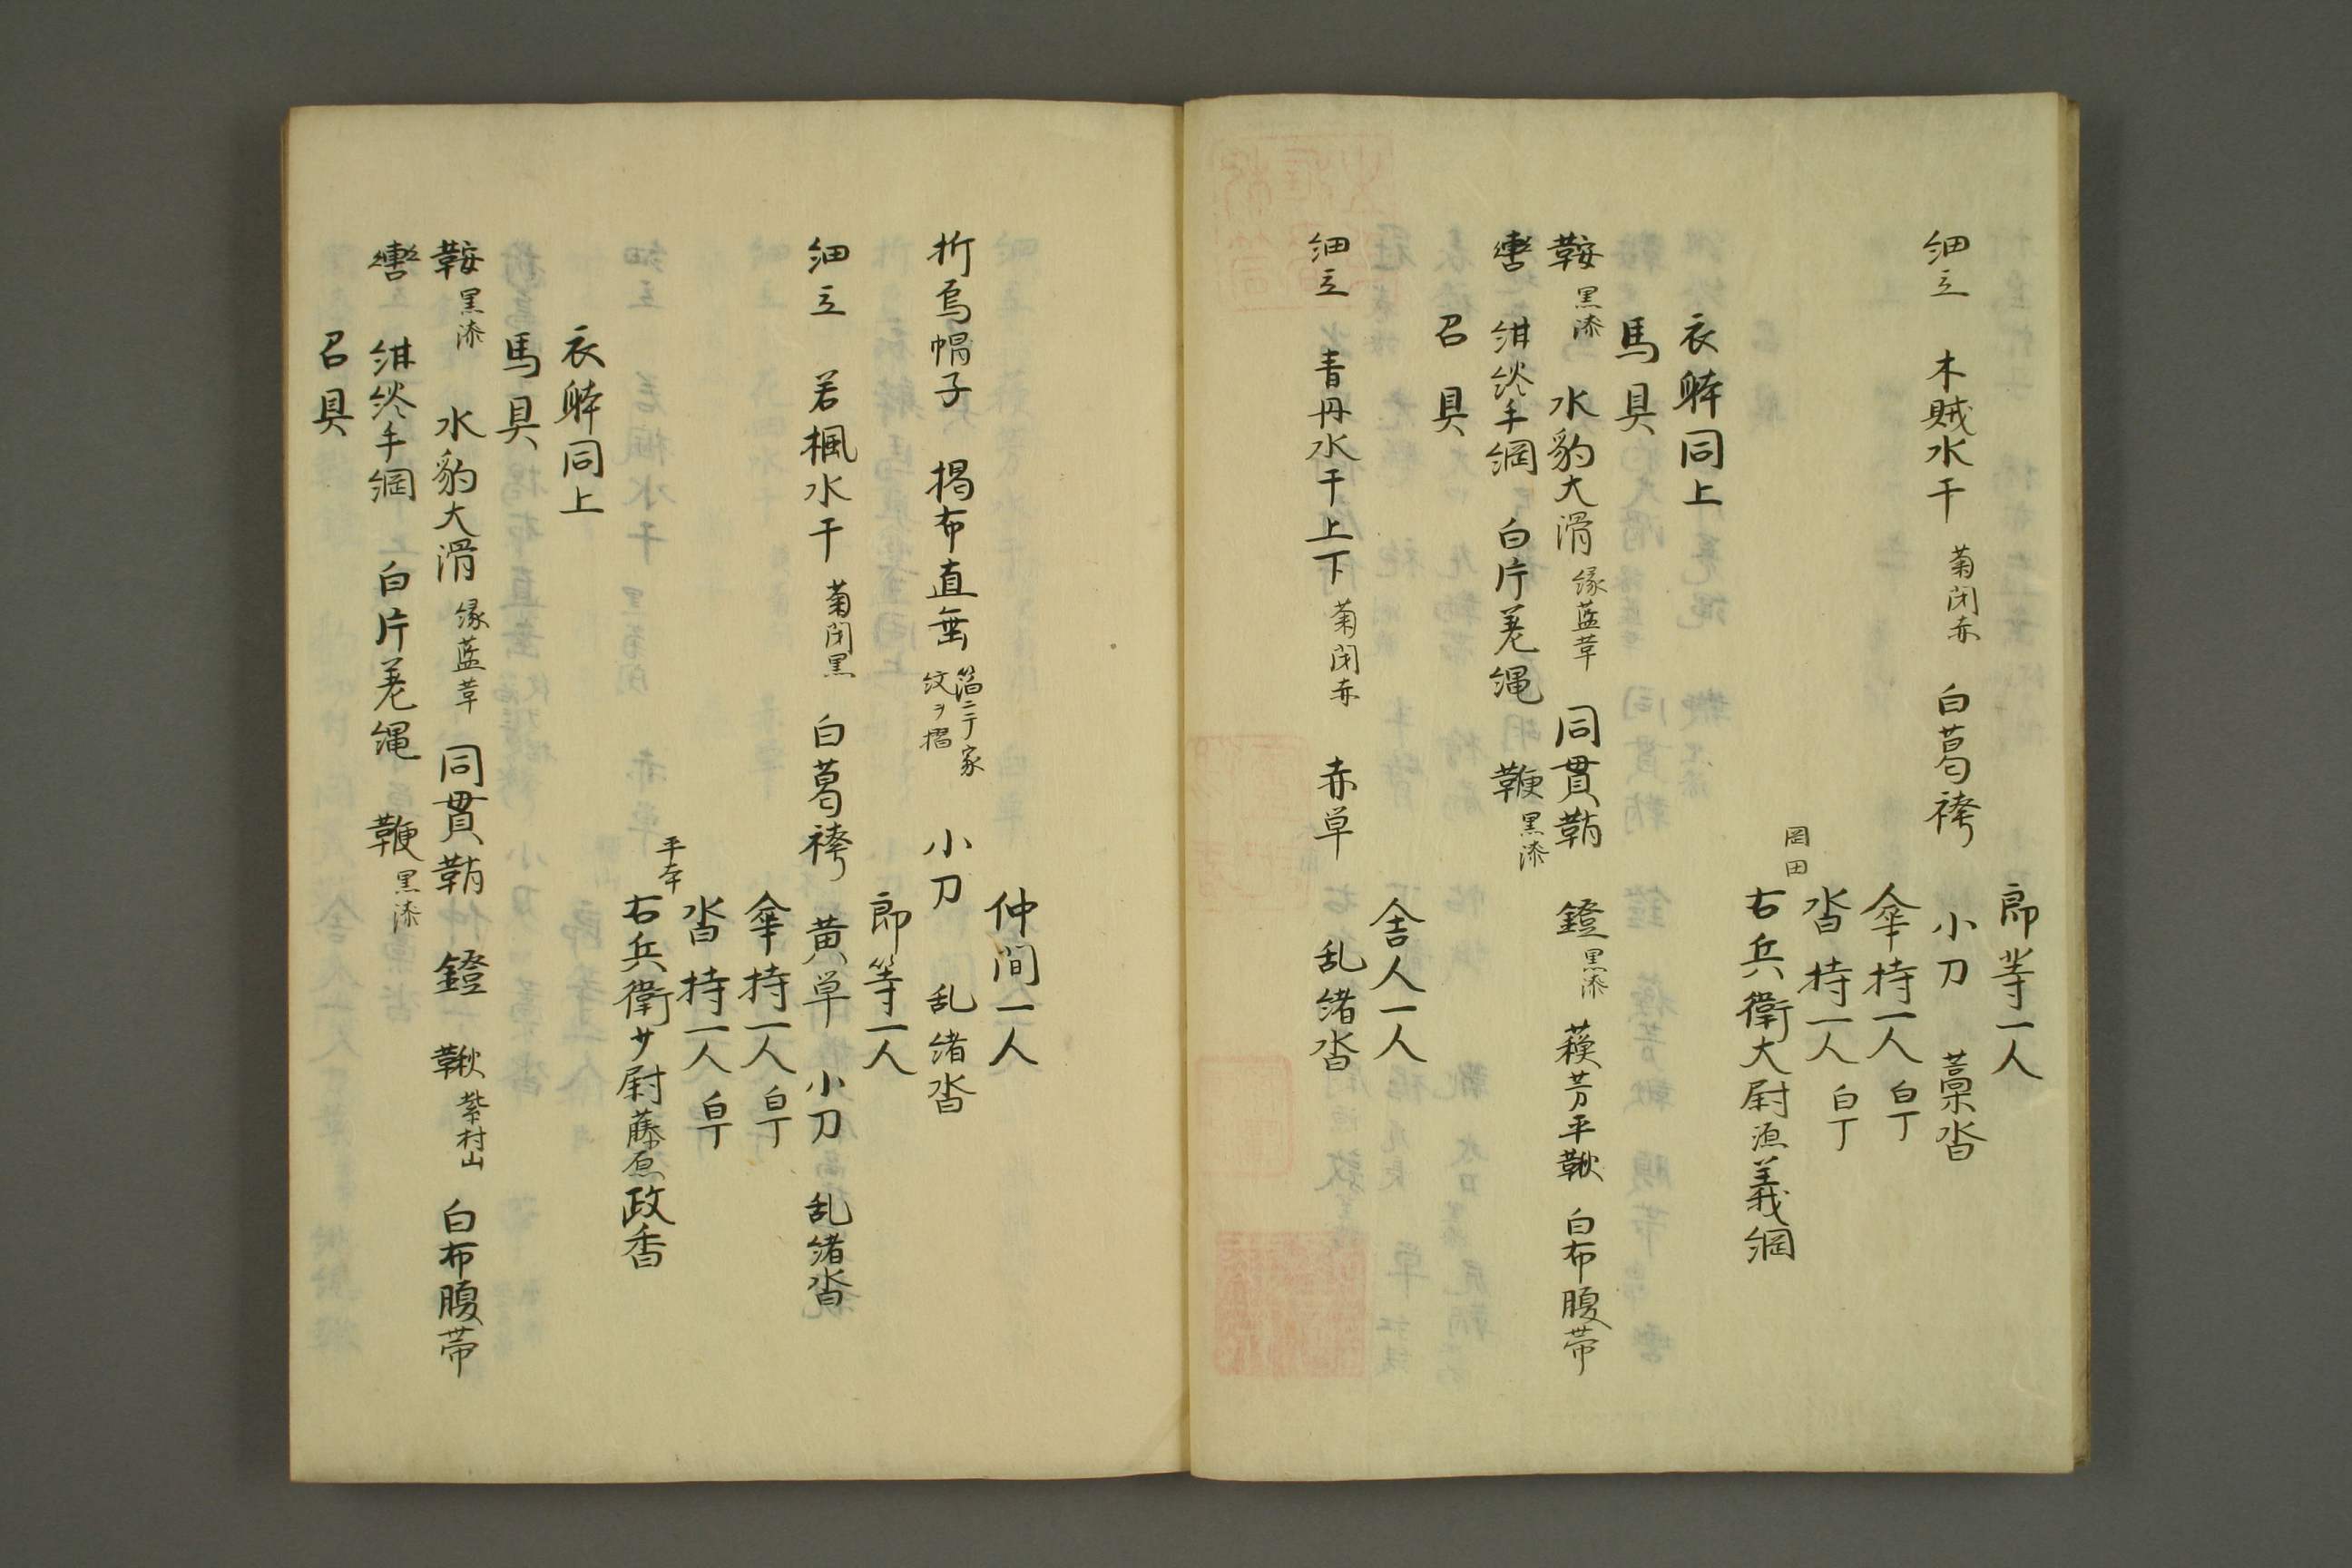 郎等一人
細立　木賊水干　菊閉赤　白葛袴　小刀　藁沓
傘持一人　白丁
沓持一人　白丁
岡田
右兵衛大尉源義綱
衣躰同上
馬具
鞍　黒漆　水豹大滑　縁藍革　同貫鞘　鐙　黒漆　蘓芳平鞦　白布腹帯
轡　紺絞手綱　白片差縄　鞭　黒漆
召具
舎人一人
細立　青丹水干上下　菊閉赤　赤単　乱緒沓
仲間一人
折烏帽子　褐布直垂　箔ニテ家紋ヲ摺　小刀　乱緒沓
郎等一人
細立　若楓水干　菊閉黒　白葛袴　黄単　小刀　乱緒沓
傘持一人　白丁
沓持一人　白丁
平本
右兵衛少尉藤原政香
衣躰同上
馬具
鞍　黒漆　水豹大滑　縁藍革　同貫鞘　鐙　鞦　紫村山　白布腹帯
轡　紺絞手綱　白片差縄　鞭　黒漆
召具